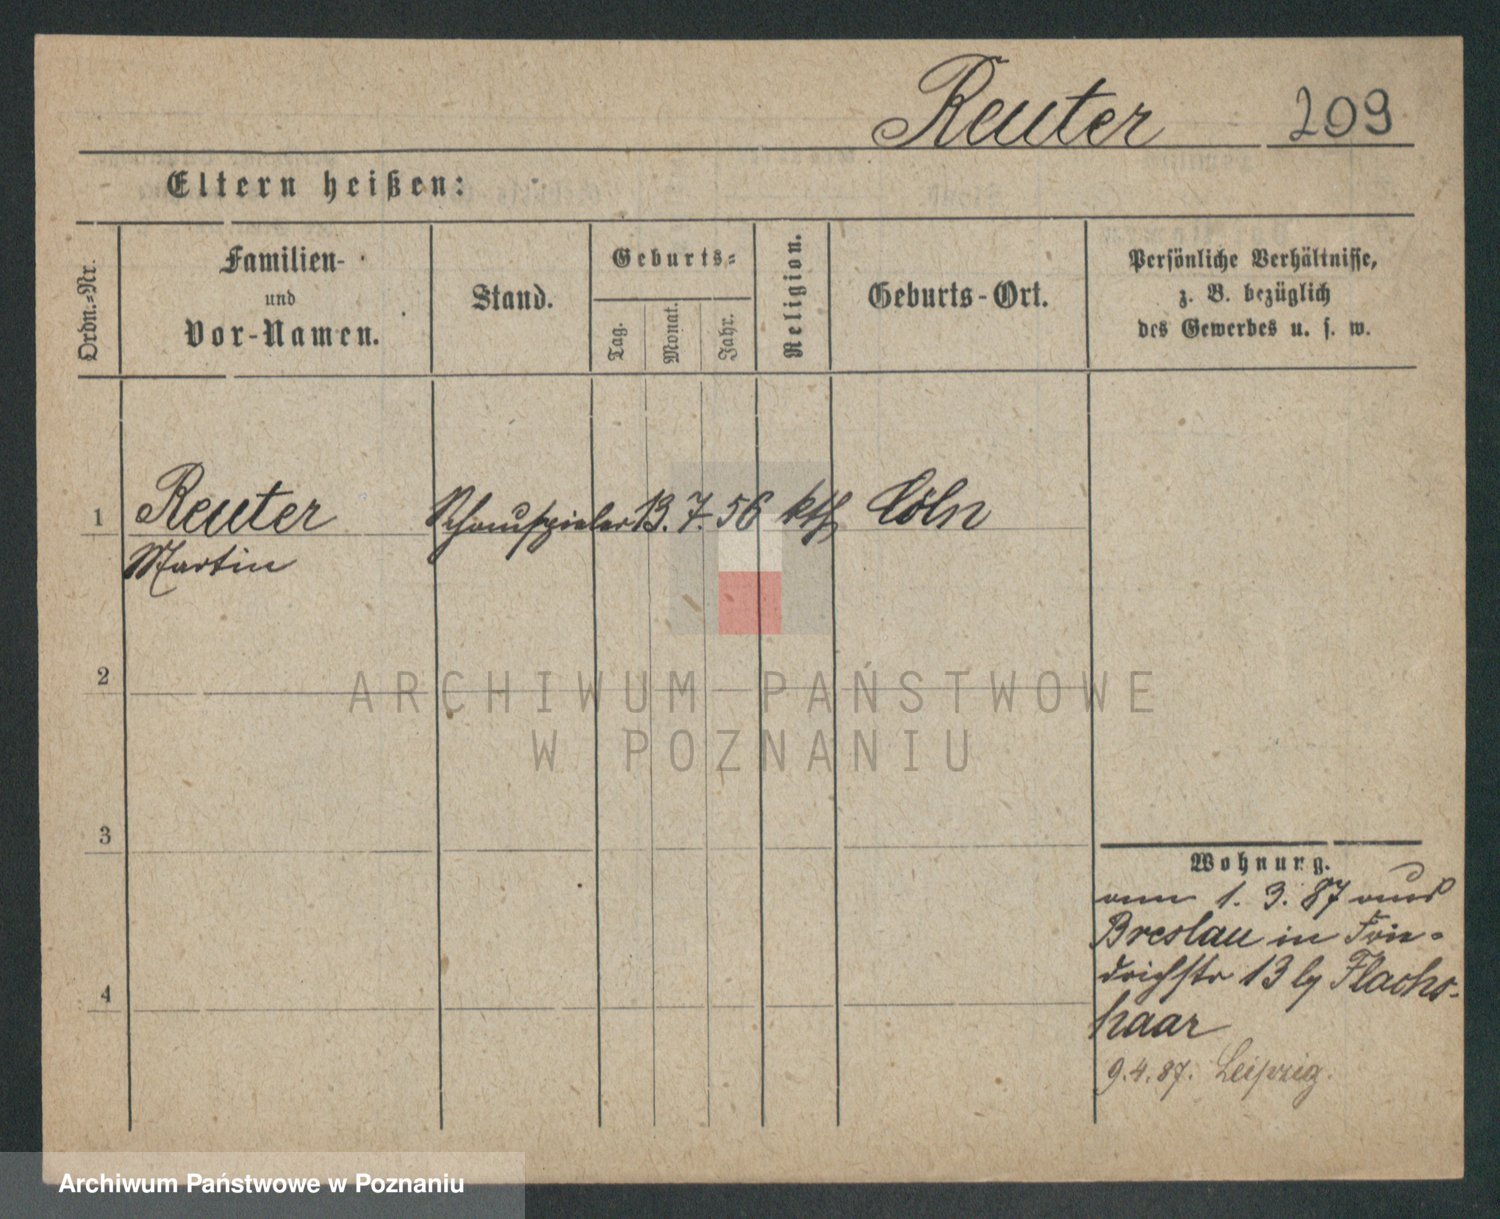 Reuter 209
Eltern heißen:
Ordn.-Nr.
Familien-
und
Vor-Namen.
Stand.
Geburts-
Tag.
Monat.
Jahr.
Religion.
Geburts-Ort.
Persönliche Verhältnisse,
z. B. bezüglich
des Gewerbes u. s. w.
1 Reuter Schauspieler 13. 7. 56 kth Cöln
Martin
2
ARCHIWUM PAŃSTWOWE
W POZNANIU
3
Wohnung.
am 1. 3. 87 aus
Breslau in Frie-
drichstr 13 bg Flachs-
haar
4
9. 4. 87. Leipzig.
Archiwum Państwowe w Poznaniu